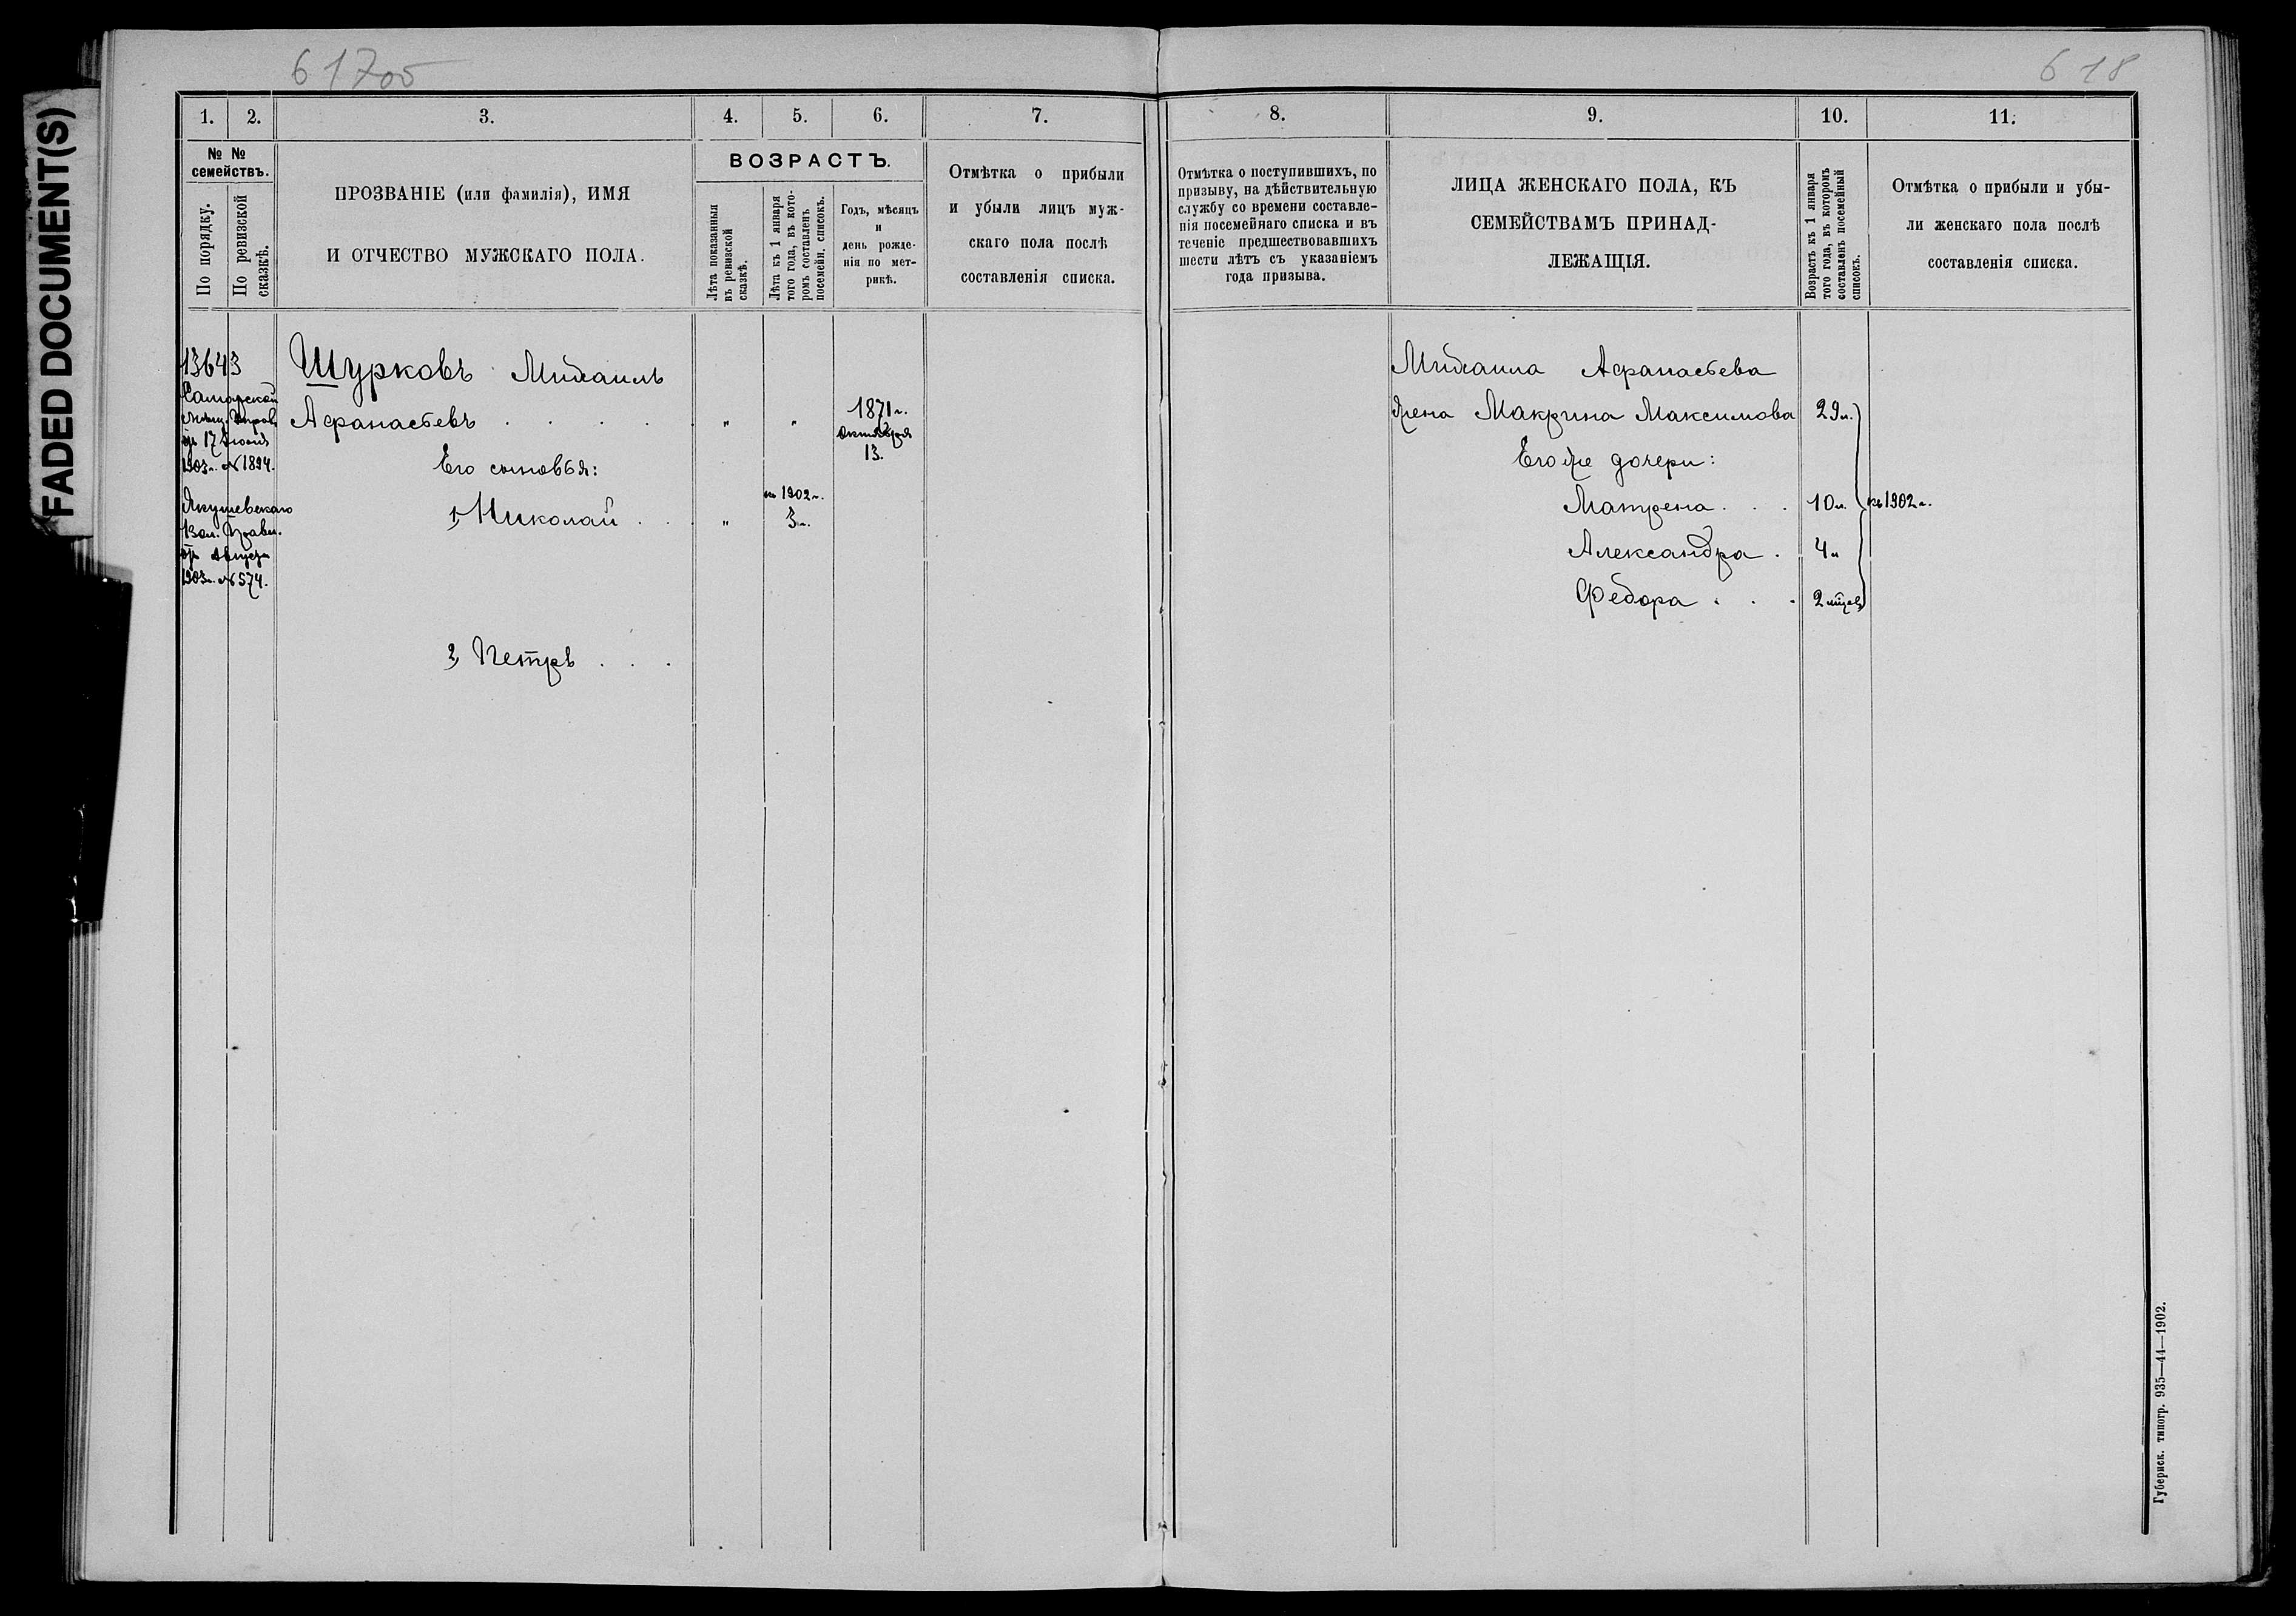 FADED DOCUMENT(S)
617об
618
1. 2. 3. 4. 5. 6. 7.
№ № семействъ.
По порядку.
По ревизской сказкѣ.
ПРОЗВАНІЕ (или фамилія), ИМЯ
И ОТЧЕСТВО МУЖСКАГО ПОЛА.
ВОЗРАСТЪ.
Лѣта показанныя
въ ревизской
сказкѣ.
Лѣта къ 1 января
того года, въ кото-
ромъ составленъ
посемейн. списокъ.
Годъ, мѣсяцъ
и
день рожде-
нія по мет-
рикѣ.
Отмѣтка о прибыли
и убыли лицъ муж-
скаго пола послѣ
составленія списка.
13643
Самарской
Мѣщ. Управ.
отъ 17 Іюля
1903 г. № 1894.
Якушевскаго
Вол. Правл.
отъ Августа
1903 г. № 574.
Шурковъ Михаилъ
Афанасьевъ . . . . . " "
1871 г.
Октября
13.
Его сыновья:
1, Николай . . "
къ 1902 г.
3 г.
2, Петръ . . .
8. 9. 10. 11.
Отмѣтка о поступившихъ, по
призыву, на дѣйствительную
службу со времени составле-
нія посемейнаго списка и въ
теченіе предшествовавшихъ
шести лѣтъ съ указаніемъ
года призыва.
ЛИЦА ЖЕНСКАГО ПОЛА, КЪ
СЕМЕЙСТВАМЪ ПРИНАД-
ЛЕЖАЩІЯ.
Возрастъ къ 1 января
того года, въ которомъ
составленъ посемейный
списокъ.
Отмѣтка о прибыли и убы-
ли женскаго пола послѣ
составленія списка.
Михаила Афанасьева
жена Макрина Максимова 29 л.
Его же дочери:
Матрена . . . 10 л. къ 1902 г.
Александра . 4 л
Федора . . . 2 мѣсяц
Губернск. типогр. 935—44—1902.